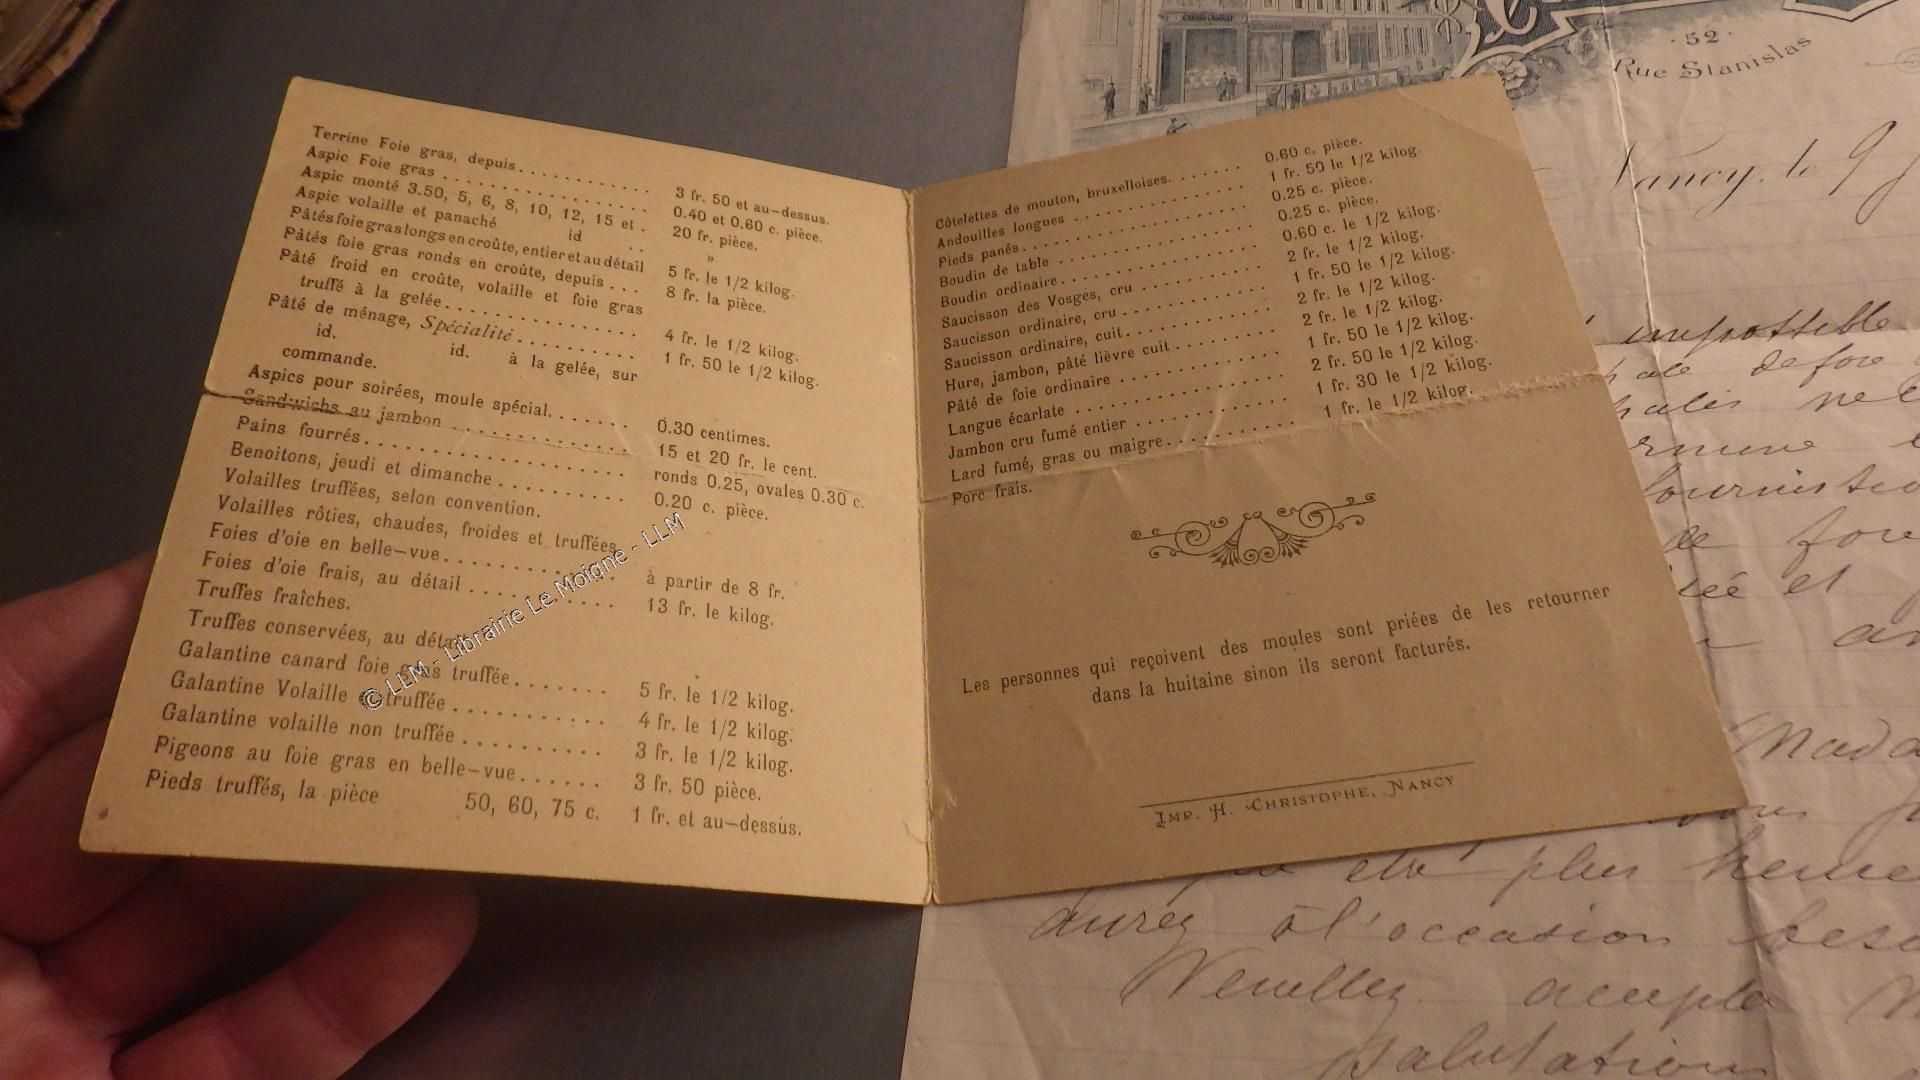 Terrine Foie gras, depuis............ 3 fr. 50 et au-dessus.
Aspic Foie gras .................. 0.40 et 0.60 c. pièce.
Aspic monté 3.50, 5, 6, 8, 10, 12, 15 et . 20 fr. pièce.
Aspic volaille et panaché id .. »
Pâtés foie gras longs en croûte, entier et au détail 5 fr. le 1/2 kilog.
Pâtés foie gras ronds en croûte, depuis ... 8 fr. la pièce.
Pâté froid en croûte, volaille et foie gras
truffé à la gelée................. 4 fr. le 1/2 kilog.
Pâté de ménage, Spécialité.......... 1 fr. 50 le 1/2 kilog.
id. id. à la gelée, sur
commande.
Aspics pour soirées, moule spécial....... 0.30 centimes.
Sandwichs au jambon ............... 15 et 20 fr. le cent.
Pains fourrés...................... ronds 0.25, ovales 0.30 c.
Benoitons, jeudi et dimanche .......... 0.20 c. pièce.
Volailles truffées, selon convention.
Volailles rôties, chaudes, froides et truffées.
Foies d'oie en belle-vue............. à partir de 8 fr.
Foies d'oie frais, au détail ............ 13 fr. le kilog.
Truffes fraîches.
Truffes conservées, au détail
Galantine canard foie gras truffée....... 5 fr. le 1/2 kilog.
Galantine Volaille truffée ............ 4 fr. le 1/2 kilog.
Galantine volaille non truffée .......... 3 fr. le 1/2 kilog.
Pigeons au foie gras en belle-vue...... 3 fr. 50 pièce.
Pieds truffés, la pièce 50, 60, 75 c. 1 fr. et au-dessus.
© LLM - Librairie Le Moigne - LLM
Côtelettes de mouton, bruxelloises....... 0.60 c. pièce.
Andouilles longues .............. 1 fr. 50 le 1/2 kilog.
Pieds panés.................. 0.25 c. pièce.
Boudin de table ............... 0.25 c. pièce.
Boudin ordinaire............... 0.60 c. le 1/2 kilog.
Saucisson des Vosges, cru .......... 2 fr. le 1/2 kilog.
Saucisson ordinaire, cru............ 1 fr. 50 le 1/2 kilog.
Saucisson ordinaire, cuit............ 2 fr. le 1/2 kilog.
Hure, jambon, pâté lièvre cuit ........ 2 fr. le 1/2 kilog.
Pâté de foie ordinaire ............ 1 fr. 50 le 1/2 kilog.
Langue écarlate ............... 2 fr. 50 le 1/2 kilog.
Jambon cru fumé entier ........... 1 fr. 30 le 1/2 kilog.
Lard fumé, gras ou maigre.......... 1 fr. le 1/2 kilog.
Porc frais.
Les personnes qui reçoivent des moules sont priées de les retourner
dans la huitaine sinon ils seront facturés.
IMP. H. CHRISTOPHE, NANCY
52
Rue Stanislas
Nancy, le 9
impossible
de foie
Mada
plus
aurez à l'occasion
Veuillez
salutations